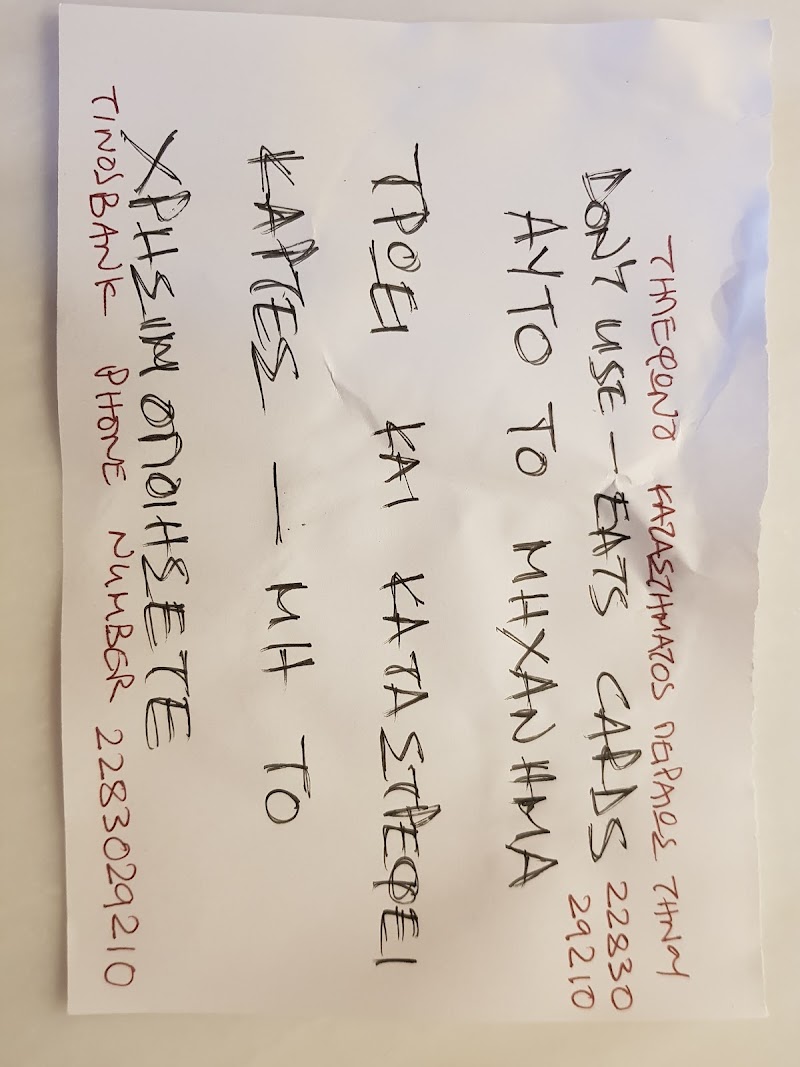 ΤΗΛΕΦΩΝΟ ΚΑΤΑΣΤΗΜΑΤΟΣ ΠΕΙΡΑΙΩΣ ΤΗΝΟΥ
DON'T USE – EATS CARDS 22830
29210
ΑΥΤΟ ΤΟ ΜΗΧΑΝΗΜΑ
ΤΡΩΕΙ ΚΑΙ ΚΑΤΑΣΤΡΕΦΕΙ
ΚΑΡΤΕΣ — ΜΗ ΤΟ
ΧΡΗΣΙΜΟΠΟΙΗΣΕΤΕ
TINOS BANK PHONE NUMBER 2283029210